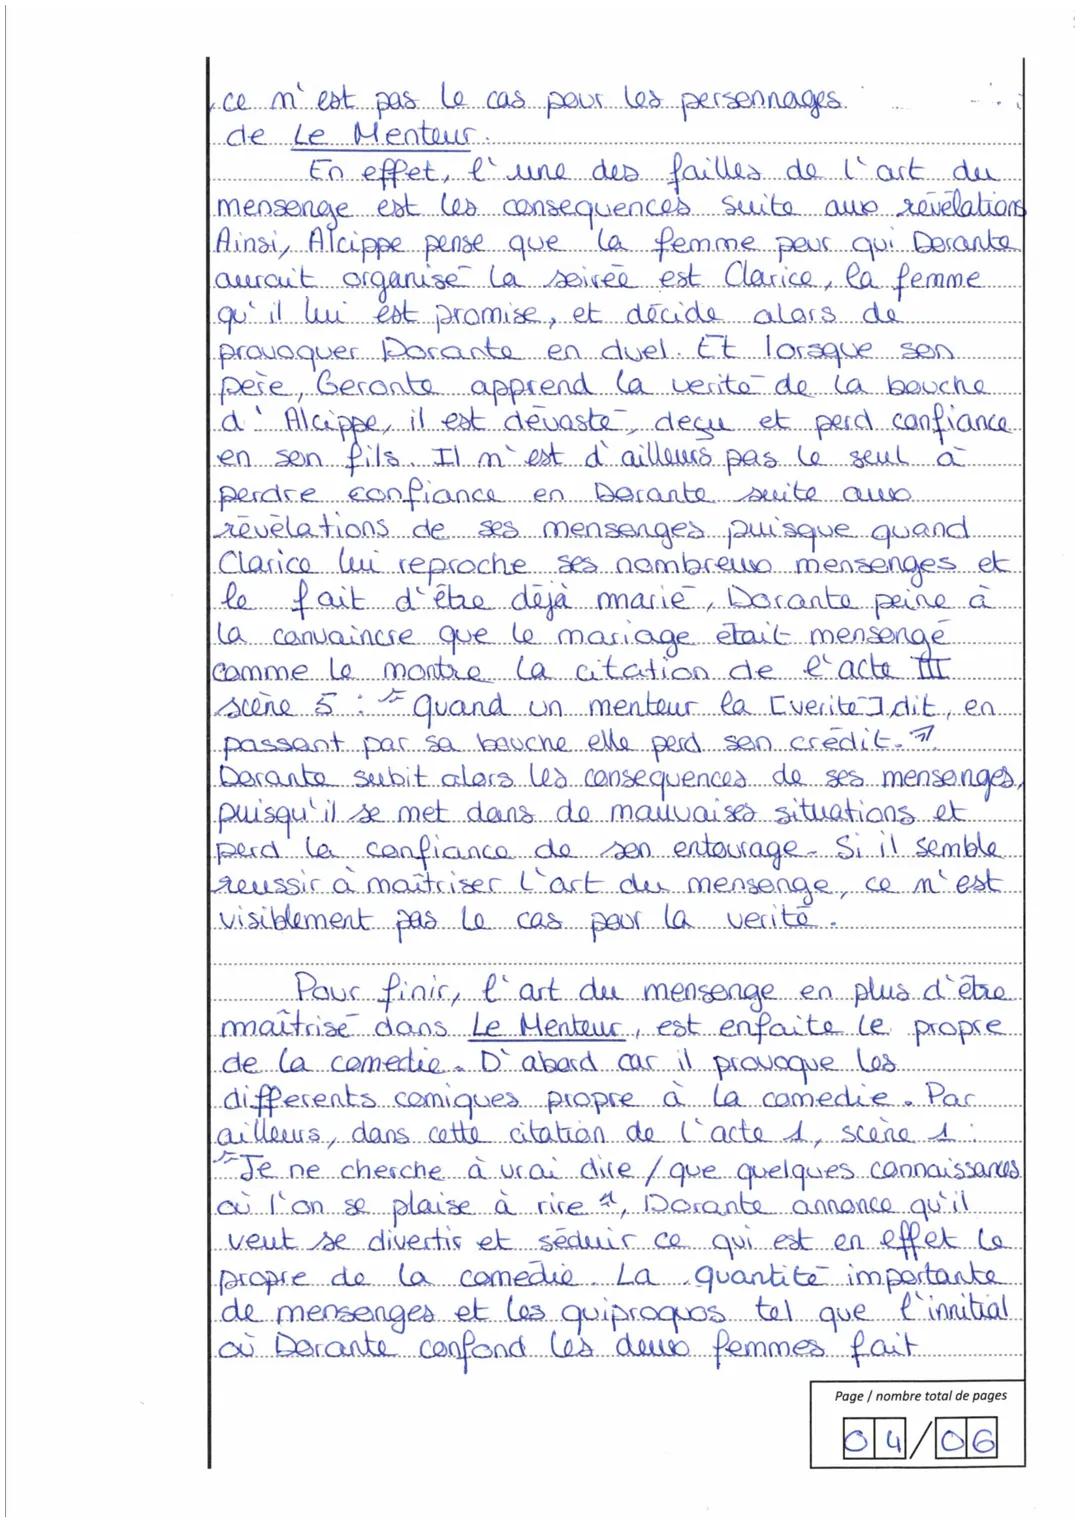 ce n'est pas le cas pour les personnages
de Le Menteur.
En effet, l'une des failles de l'art du
mensonge est les consequences suite aux révélations
Ainsi, Alcippe pense que la femme pour qui Dorante
aurait organisé la soirée est Clarice, la femme
qu'il lui est promise, et décide alors de
provoquer Dorante en duel. Et lorsque son
père, Geronte apprend la verité de la bouche
d'Alcippe, il est dévasté, deçu et perd confiance
en son fils. Il n'est d'ailleurs pas le seul à
perdre confiance en Dorante suite aux
révèlations de ses mensonges puisque quand
Clarice lui reproche ses nombreux mensonges et
le fait d'être déjà marié, Dorante peine à
la convaincre que le mariage était mensonge
comme le montre la citation de l'acte III
scène 5 : "Quand un menteur la [verité] dit, en
passant par sa bouche elle perd son crédit."
Dorante subit alors les consequences de ses mensonges,
puisqu'il se met dans de mauvaises situations et
perd la confiance de son entourage. Si il semble
reussir à maîtriser l'art du mensonge, ce n'est
visiblement pas le cas pour la verité.
Pour finir, l'art du mensonge en plus d'être
maîtrisé dans Le Menteur, est enfaite le propre
de la comedie. D'abord car il provoque les
differents comiques propre à la comedie. Par
ailleurs, dans cette citation de l'acte 1, scène 1 :
"Je ne cherche à vrai dire / que quelques connaissances
où l'on se plaise à rire", Dorante annonce qu'il
veut se divertir et séduir ce qui est en effet le
propre de la comédie. La quantité importante
de mensonges et les quiproquos tel que l'innitial
où Dorante confond les deux femmes fait
Page / nombre total de pages
04/06